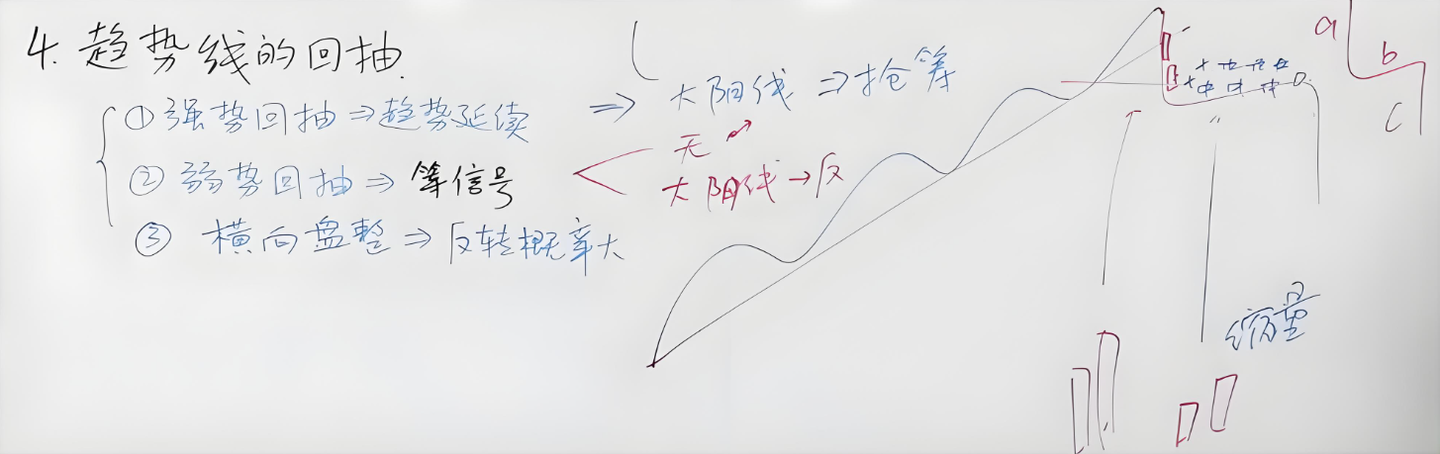 4. 趋势线的回抽.
① 强势回抽⇒趋势延续 ⇒ 大阳线⇒抢筹
② 弱势回抽⇒等信号
无↗
大阳线→反
③ 横向盘整⇒反转概率大
a
b
c
缩量